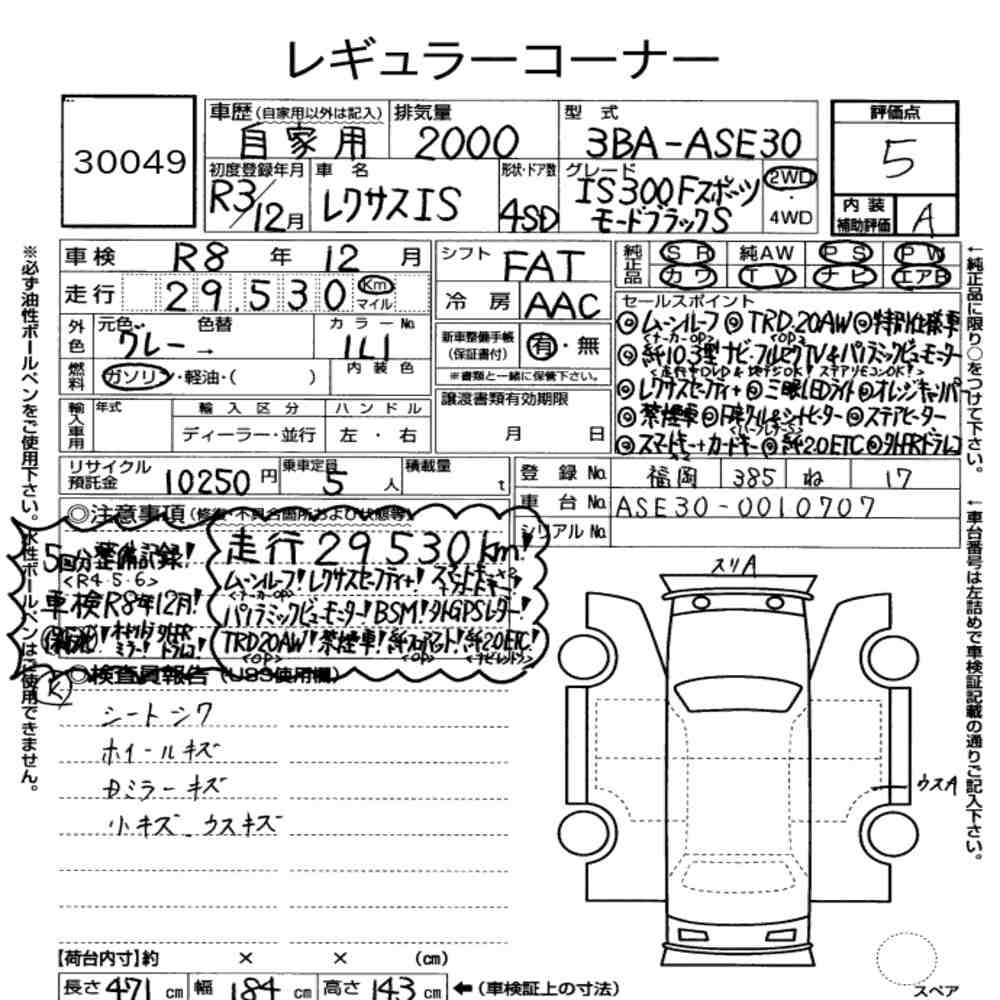 レギュラーコーナー
30049
車歴(自家用以外は記入) 自家用
排気量 2000
型式 3BA-ASE30
評価点 5
初度登録年月 R3/12月
車名 レクサスIS
形状・ドア数 4SD
グレード IS300Fスポーツ モードブラックS
2WD・4WD
内装補助評価 A
車検 R8年12月
走行 29.530 Km マイル
外色 元色 グレー → 色替
カラーNo. 1L1
燃料 ガソリン・軽油・( )
内装色
輸入車用 年式 輸入区分 ディーラー・並行 ハンドル 左・右
シフト FAT
冷房 AAC
新車整備手帳(保証書付) 有・無
※書類と一緒に保管下さい。
譲渡書類有効期限 月 日
純正品 SR 純AW PS PW
カワ TV ナビ エアB
セールスポイント
◎ムーンルーフ ◎TRD.20AW ◎特別仕様車
<メーカーOP> <OP>
◎純10.3型ナビ・フルセグTV&パノラミックビューモニター
◎レクサスセーフティ+ ◎三眼LEDライト ◎オレンジキャリパー
◎禁煙車 ◎ ◎ステアヒーター
◎スマートキー+カードキー ◎純2.0ETC ◎外FRドラレコ
リサイクル預託金 10250円
乗車定員 5人
積載量 t
登録No. 福岡 385 ね 17
車台No. ASE30-0010707
シリアルNo.
◎注意事項(修復・不具合箇所および状態等)
5回分整備記録!
<R4・5・6>
車検R8年12月!
走行29.530km!
ムーンルーフ!レクサスセーフティ+!スマートキー×2+カードキー!
<メーカーOP>
パノラミックビューモニター!BSM!外GPSレーダー!
TRD20AW!禁煙車!純フロアマット!純2.0ETC!
<OP> <OP> <ナビレンドウ>
◎検査員報告(USS使用欄)
シートシワ
ホイールキズ
Dミラーキズ
小キズ ウスキズ
スリA
ウスA
【荷台内寸】約 × × (cm)
長さ 471 cm 幅 184 cm 高さ 143 cm ←(車検証上の寸法)
スペア
※必ず油性ボールペンをご使用下さい。水性ボールペンはご使用できません。
←純正品に限り○をつけて下さい。
←車台番号は左詰めで車検証記載の通りご記入下さい。